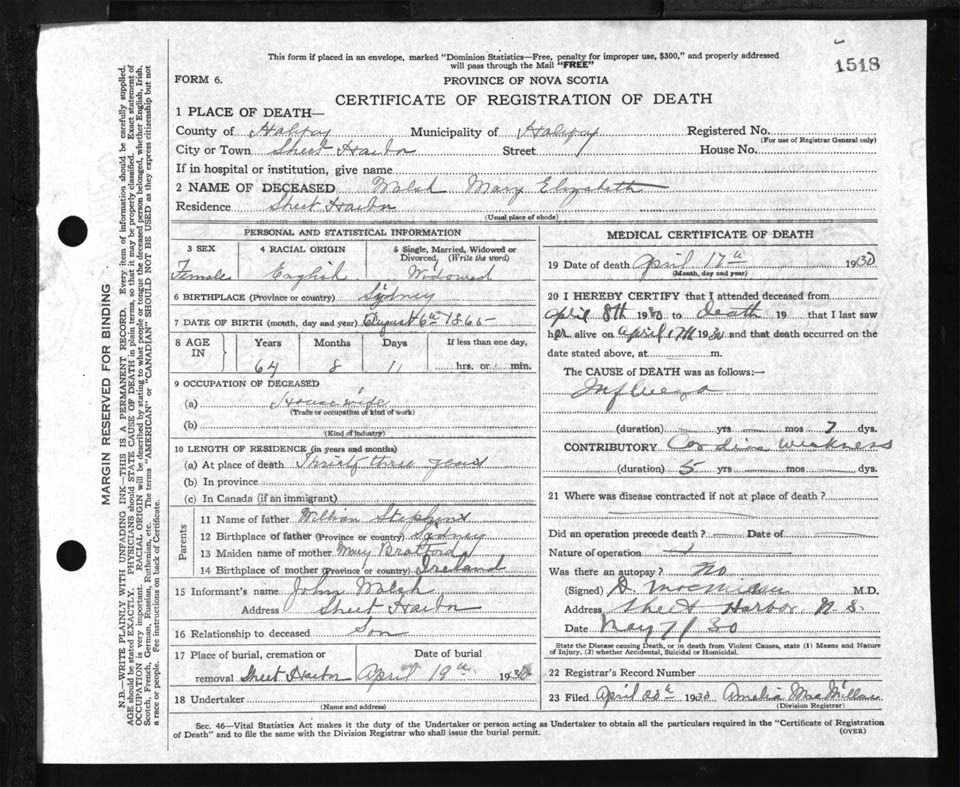 This form if placed in an envelope, marked "Dominion Statistics—Free, penalty for improper use, $300," and properly addressed
will pass through the Mail "FREE"
1518
FORM 6.
PROVINCE OF NOVA SCOTIA
CERTIFICATE OF REGISTRATION OF DEATH
1 PLACE OF DEATH—
County of Halifax Municipality of Halifax Registered No.
(For use of Registrar General only)
City or Town Sheet Harbor Street House No.
If in hospital or institution, give name
2 NAME OF DECEASED Walsh Mary Elizabeth
Residence Sheet Harbor
(Usual place of abode)
PERSONAL AND STATISTICAL INFORMATION
3 SEX 4 RACIAL ORIGIN 5 Single, Married, Widowed or
Divorced, (Write the word)
Female English Widowed
6 BIRTHPLACE (Province or country) Sydney
7 DATE OF BIRTH (month, day and year) August 6th 1865
8 AGE IN Years Months Days If less than one day,
64 8 11 hrs. or min.
9 OCCUPATION OF DECEASED
(a) Housewife
(Trade or occupation or kind of work)
(b)
(Kind of Industry)
10 LENGTH OF RESIDENCE (in years and months)
(a) At place of death Thirty three years
(b) In province
(c) In Canada (if an immigrant)
Parents
11 Name of father William Stephens
12 Birthplace of father (Province or country) Sydney
13 Maiden name of mother Mary Bratford
14 Birthplace of mother (Province or country) Ireland
15 Informant's name John Walsh
Address Sheet Harbor
16 Relationship to deceased Son
17 Place of burial, cremation or Date of burial
removal Sheet Harbor April 19th 1930
18 Undertaker
(Name and address)
MEDICAL CERTIFICATE OF DEATH
19 Date of death April 17th 1930
(Month, day and year)
20 I HEREBY CERTIFY that I attended deceased from
April 8th 1930 to death 19 that I last saw
her alive on April 17th 1930 and that death occurred on the
date stated above, at m.
The CAUSE of DEATH was as follows:—
Influenza
(duration) yrs mos 7 dys.
CONTRIBUTORY Cardiac weakness
(duration) 5 yrs mos dys.
21 Where was disease contracted if not at place of death?
Did an operation precede death? Date of
Nature of operation
Was there an autopsy? No
(Signed) D. M.D.
Address Sheet Harbor, N.S.
Date May 7/30
State the Disease causing Death, or in Death from Violent Causes, state (1) Means and Nature
of Injury, (2) whether Accidental, Suicidal or Homicidal.
22 Registrar's Record Number
23 Filed April 1930 Amelia MacMillan
(Division Registrar)
Sec. 46—Vital Statistics Act makes it the duty of the Undertaker or person acting as Undertaker to obtain all the particulars required in the "Certificate of Registration
of Death" and to file the same with the Division Registrar who shall issue the burial permit.
(OVER)
MARGIN RESERVED FOR BINDING
N.B.—WRITE PLAINLY WITH UNFADING INK—THIS IS A PERMANENT RECORD. Every item of information should be carefully supplied.
AGE should be stated EXACTLY. PHYSICIANS should STATE CAUSE OF DEATH in plain terms, so that it may be properly classified. Exact statement of
OCCUPATION is very important. RACIAL ORIGIN will be described by stating to what people or tongue the deceased person belonged, whether English, Irish,
Scotch, French, German, Russian, Ruthenian, etc. The terms "AMERICAN" or "CANADIAN" SHOULD NOT BE USED as they express citizenship but not
a race or people. See instructions on back of Certificate.